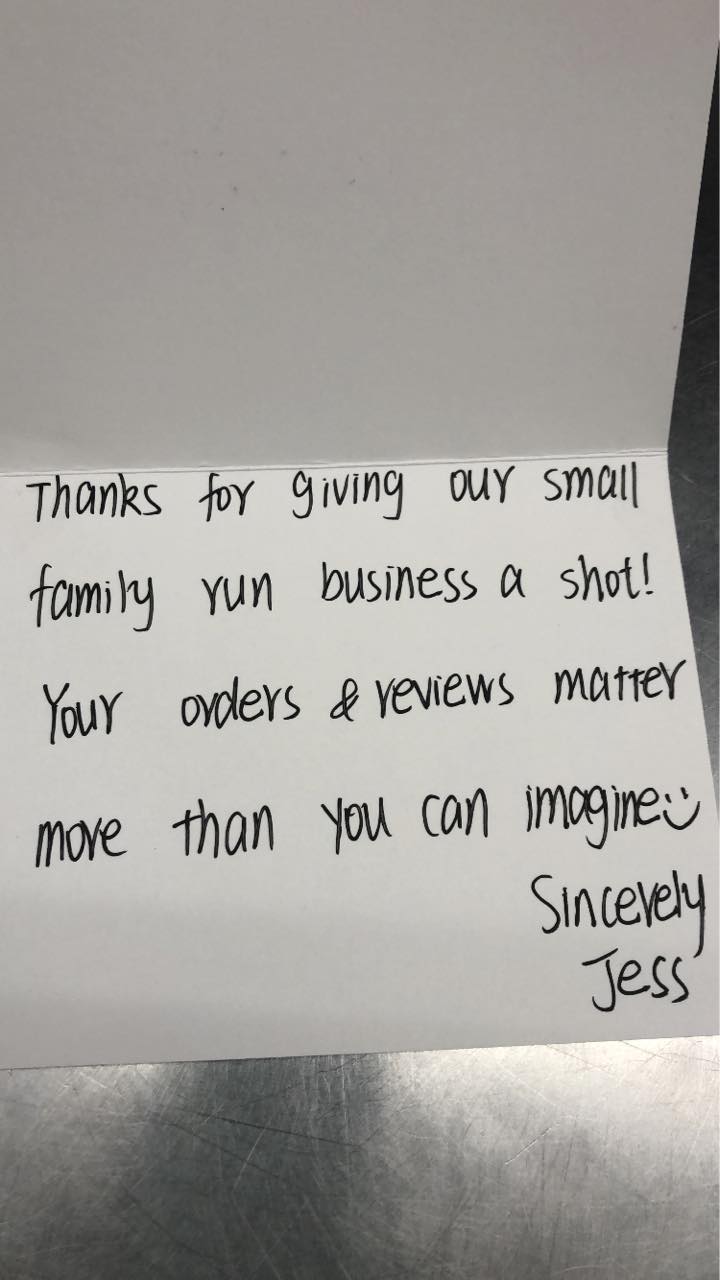 Thanks for giving our small
family run business a shot!
Your orders & reviews matter
more than you can imagine:)
Sincerely
Jess